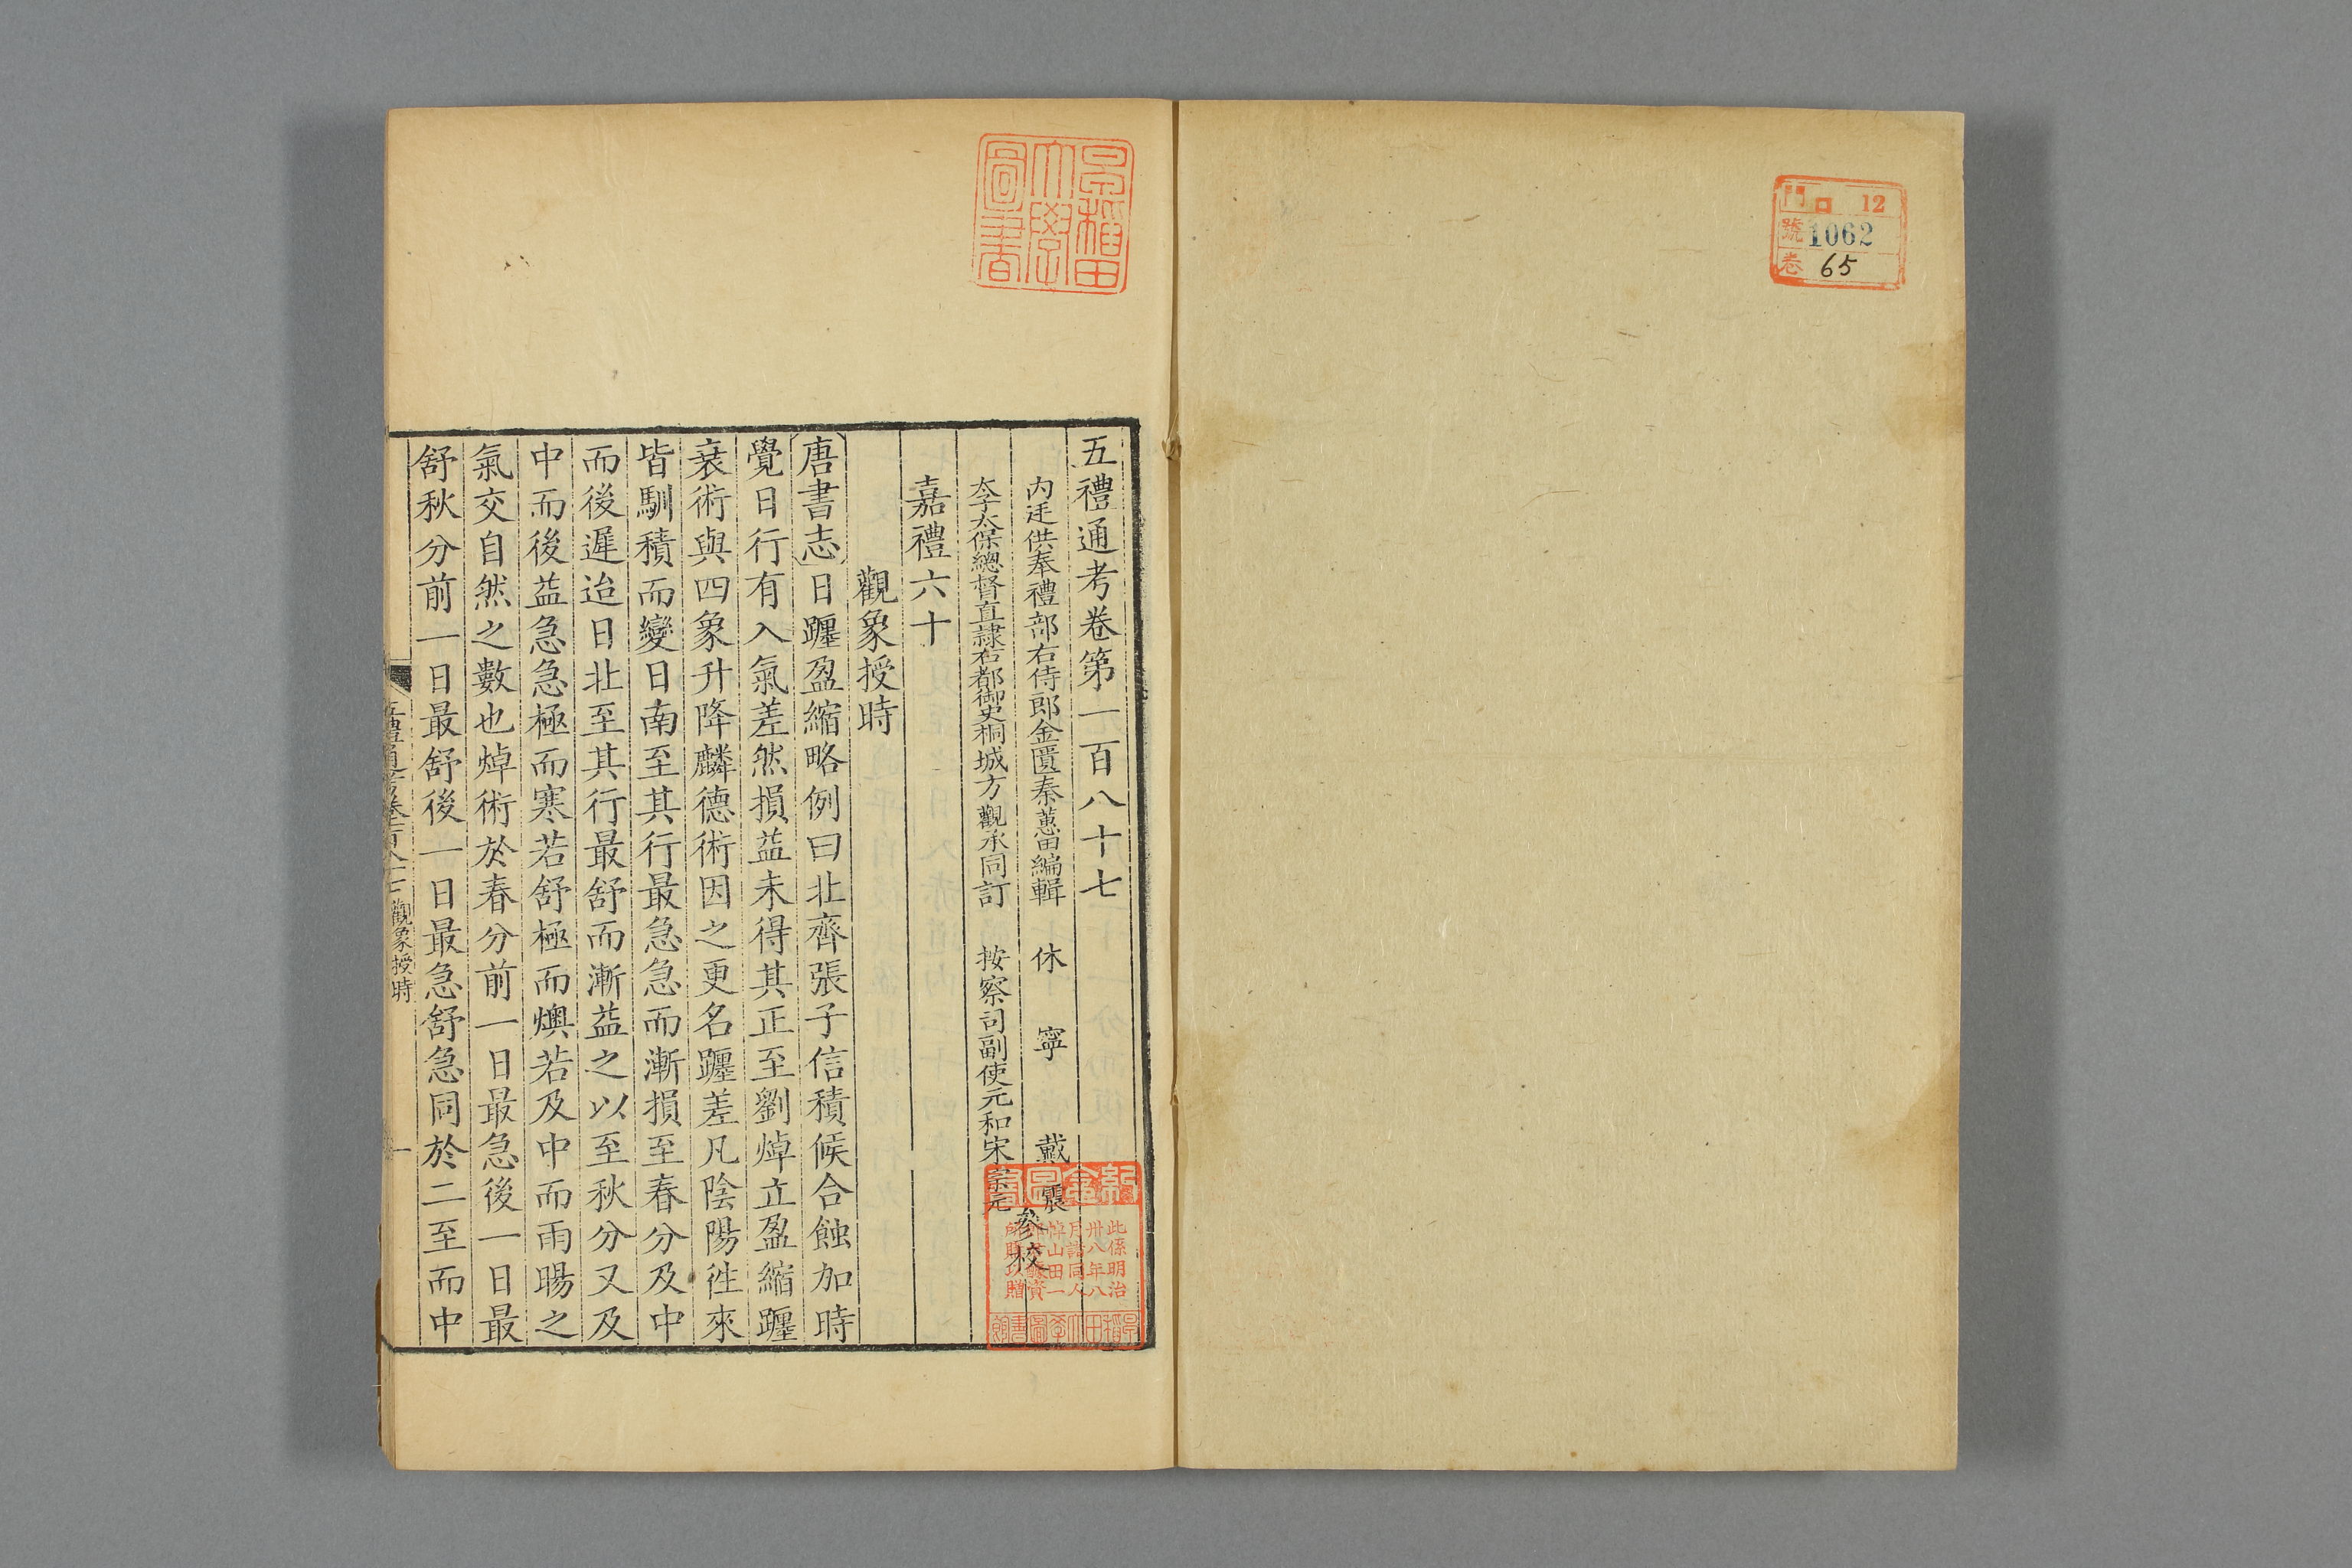 門 口 12
號 1062
卷 65
早稲田大學圖書
五禮通考卷第一百八十七
内廷供奉禮部右侍郎金匱秦蕙田編輯 休寧戴震
太子太保總督直隸右都御史桐城方觀承同訂 按察司副使元和宋宗元 參校
嘉禮六十
觀象授時
唐書志日躔盈縮略例曰北齊張子信積候合蝕加時
覺日行有入氣差然損益未得其正至劉焯立盈縮躔
衰術與四象升降麟德術因之更名躔差凡陰陽徃來
皆馴積而變日南至其行最急急而漸損至春分及中
而後遲迨日北至其行最舒而漸益之以至秋分又及
中而後益急急極而寒若舒極而燠若及中而雨暘之
氣交自然之數也焯術於春分前一日最急後一日最
舒秋分前一日最舒後一日最急舒急同於二至而中
五禮通考卷一百八十七 觀象授時 一
此係明治
卅八年八
月諸同人
悼山田一